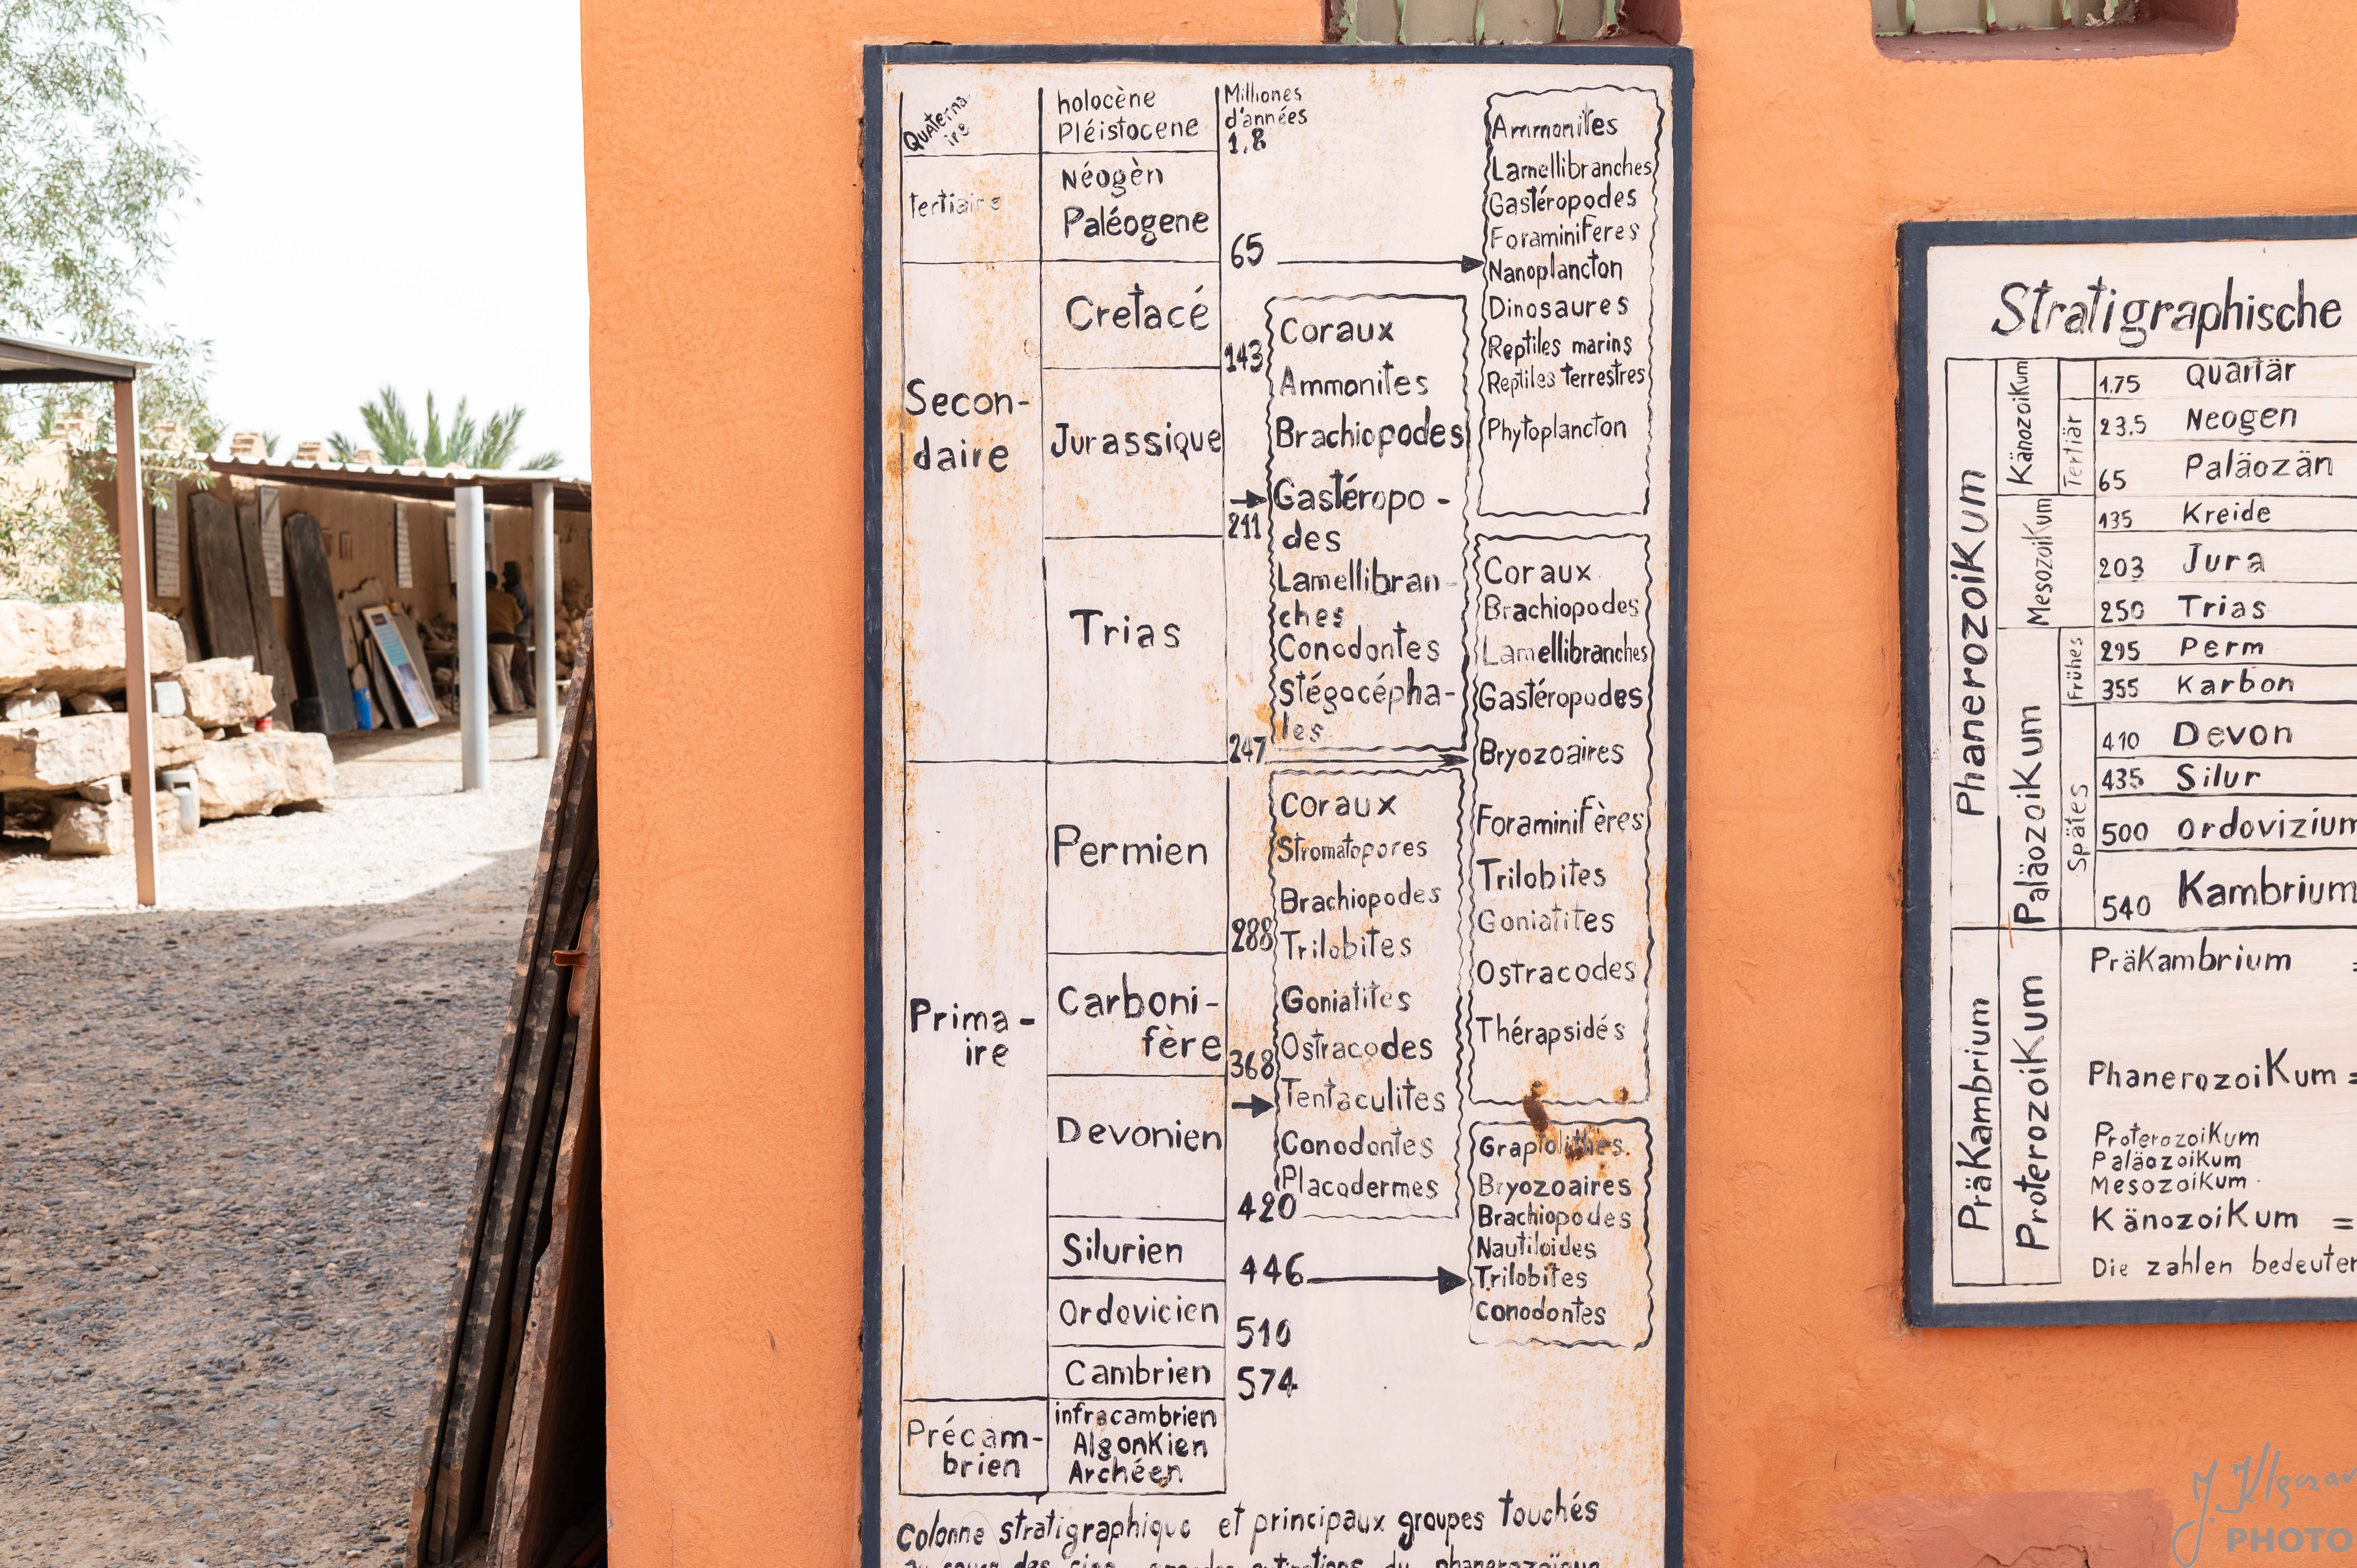 Quaterna
ire
holocène
Pléistocene
Milliones
d'années
1,8
tertiaire
Néogèn
Paléogene
65
Secon-
daire
Cretacé
143
Jurassique
211
Trias
247
Prima-
ire
Permien
288
Carboni-
fère
368
Devonien
420
Silurien
446
Ordovicien
510
Cambrien
574
Précam-
brien
infracambrien
Algonkien
Archéen
Coraux
Ammonites
Brachiopodes
Gastéropo-
des
Lamellibran-
ches
Conodontes
Stégocépha-
les
Coraux
Stromatopores
Brachiopodes
Trilobites
Goniatites
Ostracodes
Tentaculites
Conodontes
Placodermes
Ammonites
Lamellibranches
Gastéropodes
Foraminiferes
Nanoplancton
Dinosaures
Reptiles marins
Reptiles terrestres
Phytoplancton
Coraux
Brachiopodes
Lamellibranches
Gastéropodes
Bryozoaires
Foraminifères
Trilobites
Goniatites
Ostracodes
Thérapsidés
Graptolithes.
Bryozoaires
Brachiopodes
Nautiloides
Trilobites
Conodontes
Colonne stratigraphique et principaux groupes touchés
Stratigraphische
Phanerozoikum
Känozoikum
Tertiär
Mesozoikum
Paläozoikum
Frühes
Spätes
1.75 Quartär
23.5 Neogen
65 Paläozän
135 Kreide
203 Jura
250 Trias
295 Perm
355 Karbon
410 Devon
435 Silur
500 Ordovizium
540 Kambrium
Präkambrium
Proterozoikum
Präkambrium =
Phanerozoikum =
Proterozoikum
Paläozoikum
Mesozoikum
Känozoikum =
Die zahlen bedeuten
PHOTO